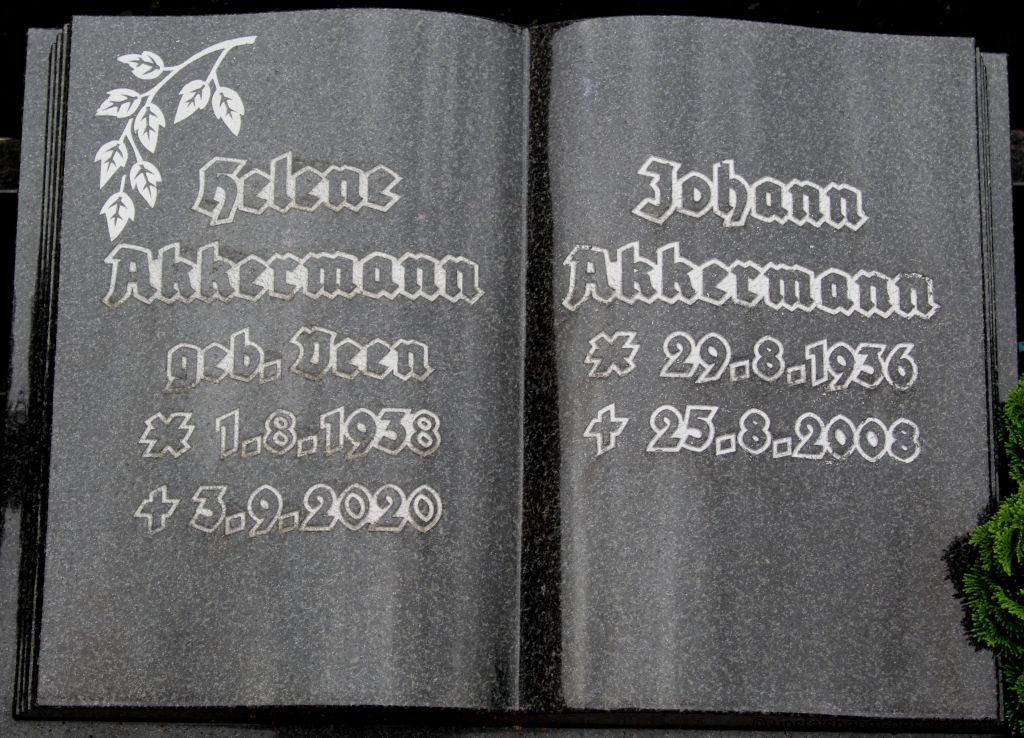 Helene
Akkermann
geb. Veen
* 1.8.1938
† 3.9.2020
Johann
Akkermann
* 29.8.1936
† 25.8.2008